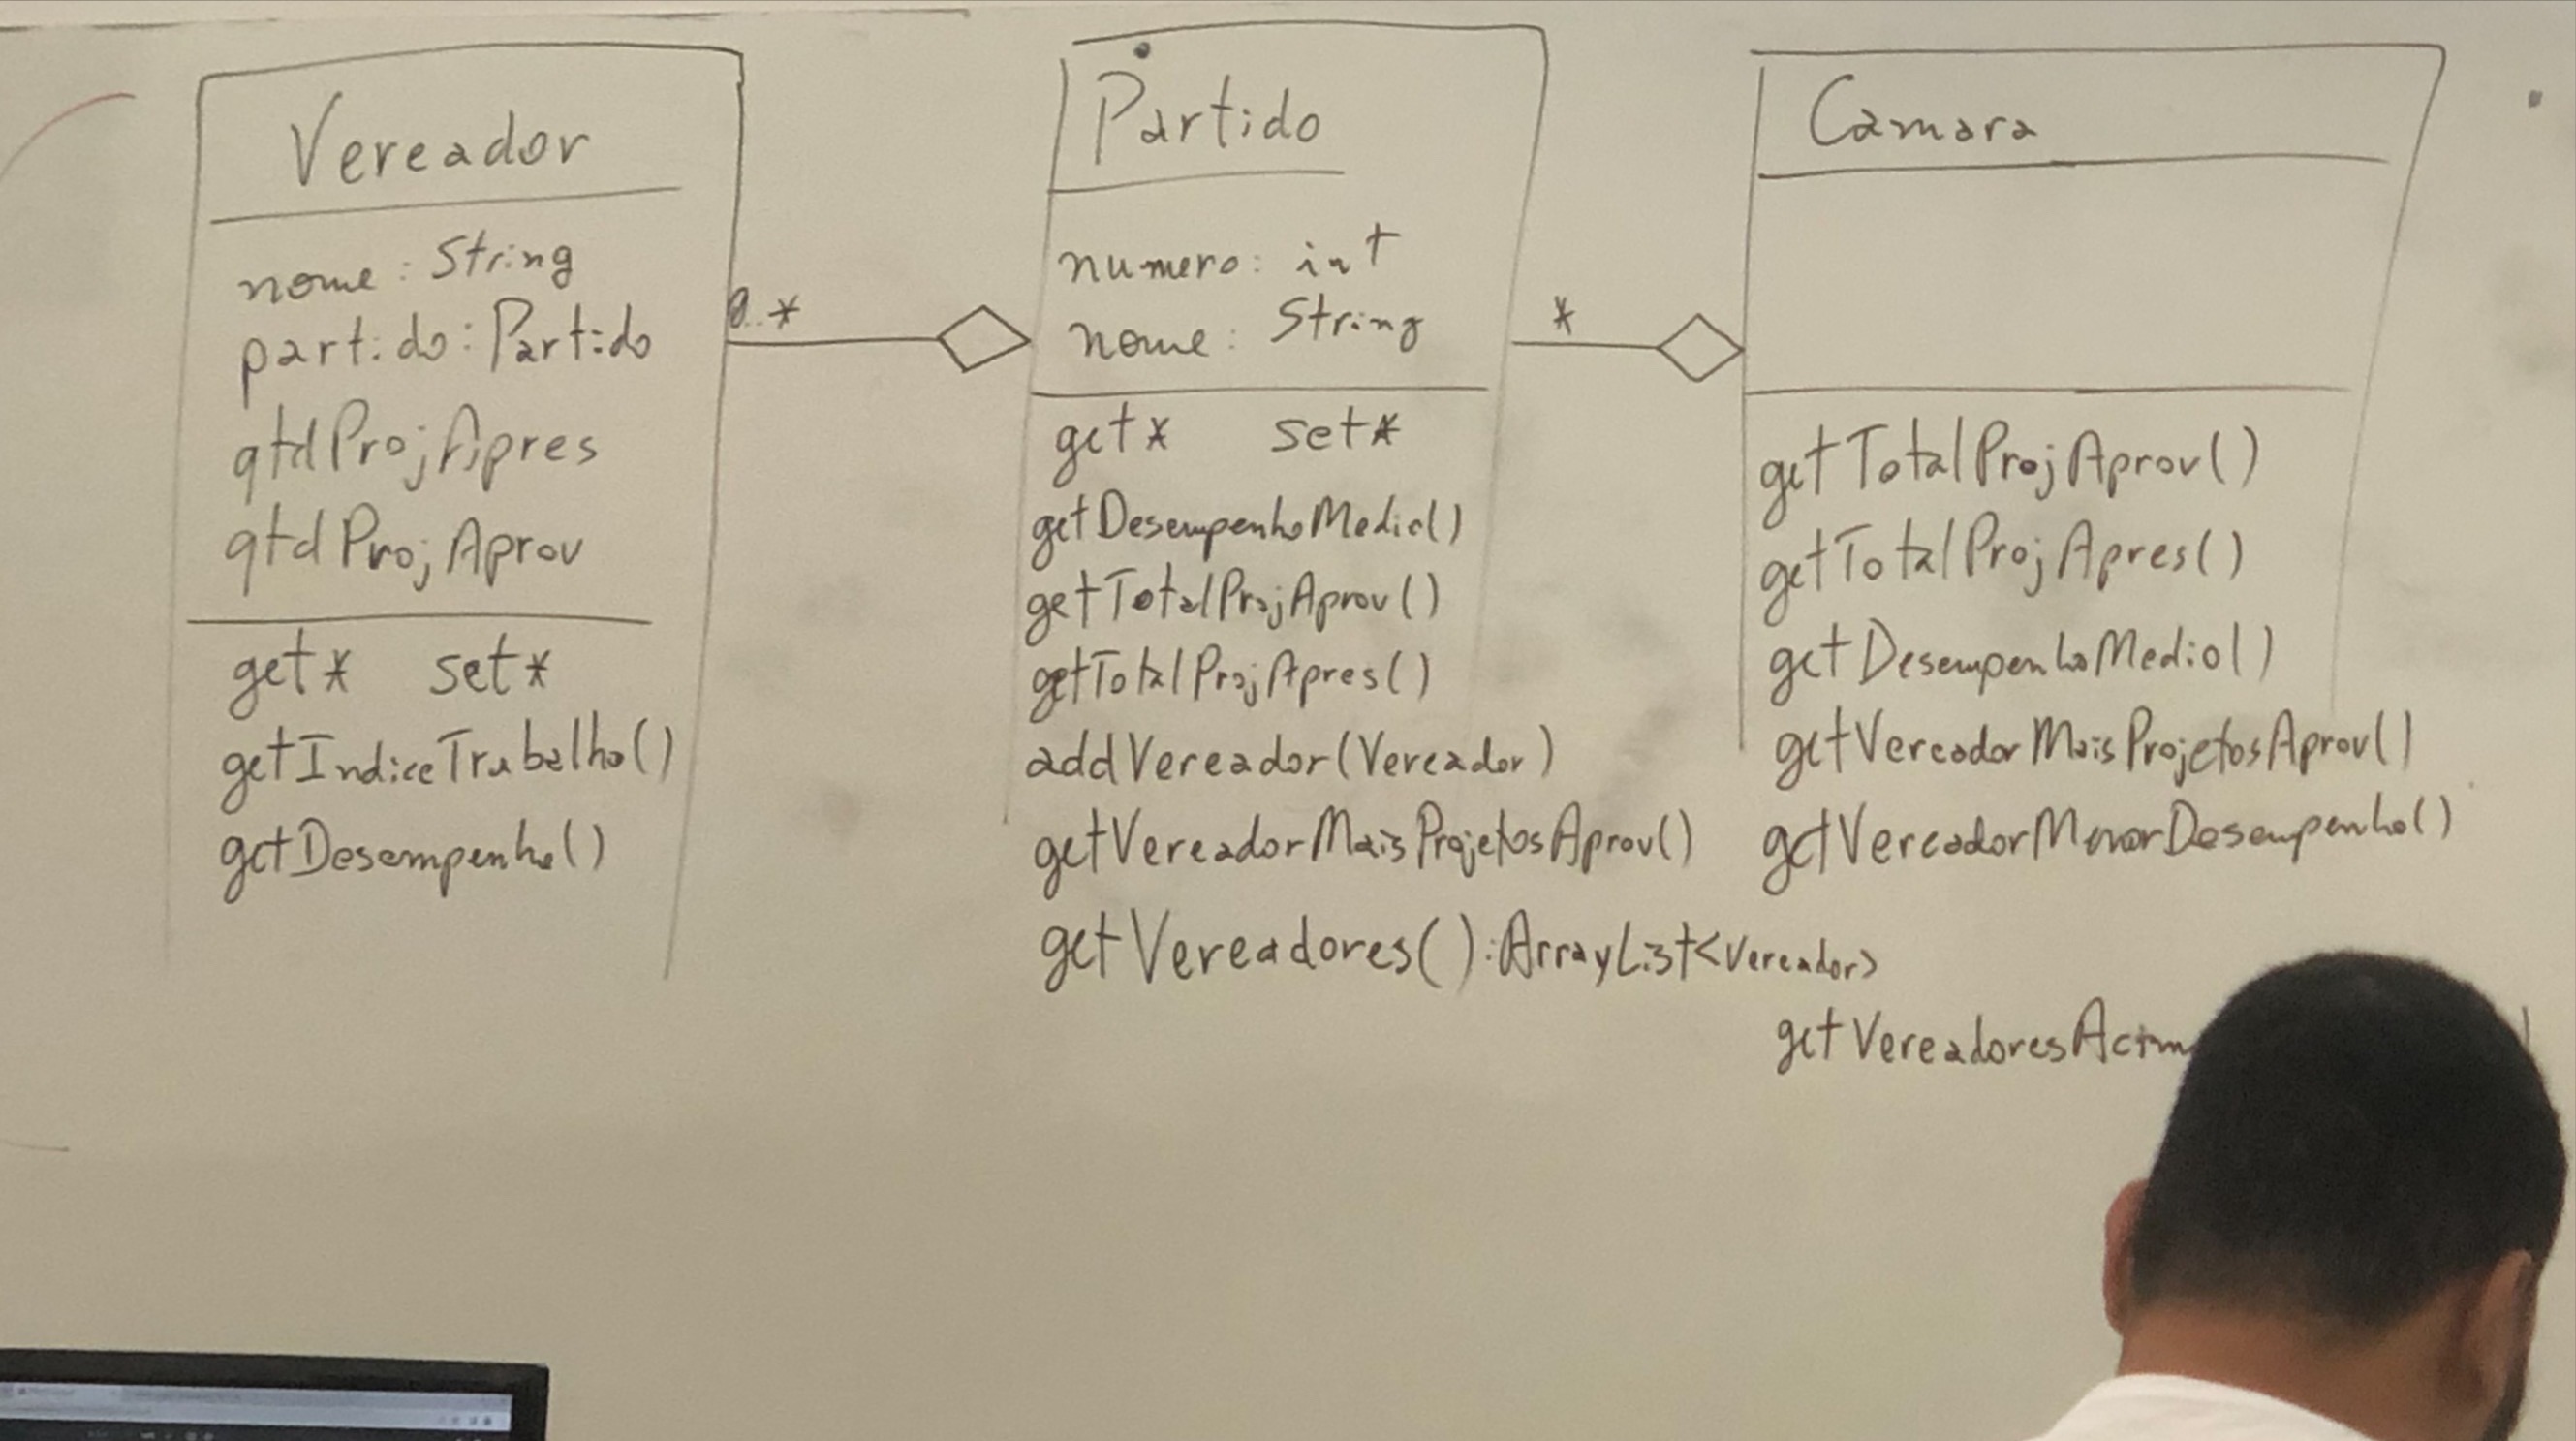 Vereador
nome: String
partido: Partido
qtdProjApres
qtdProjAprov
get* set*
getIndiceTrabalho()
getDesempenho()
0..*
Partido
numero: int
nome: String
get* set*
getDesempenhoMedio()
getTotalProjAprov()
getTotalProjApres()
addVereador(Vereador)
getVereadorMaisProjetosAprov()
getVereadores():ArrayList<Vereador>
*
Camara
getTotalProjAprov()
getTotalProjApres()
getDesempenhoMedio()
getVereadorMaisProjetosAprov()
getVereadorMenorDesempenho()
getVereadoresAcim